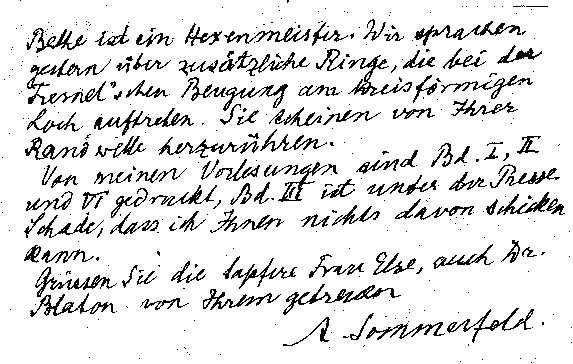 Bethe ist ein Hexenmeister. Wir sprachen
gestern über zusätzliche Ringe, die bei der
Fresnel'schen Beugung am kreisförmigen
Loch auftreten. Sie scheinen von Ihrer
Randwelle herzurühren.
Von meinen Vorlesungen sind Bd. I, II
und VI gedruckt, Bd. III ist unter der Presse.
Schade, dass ich Ihnen nichts davon schicken
kann.
Grüssen Sie die tapfere Frau Else, auch Dr.
Blaton von Ihrem getreuen
A Sommerfeld.